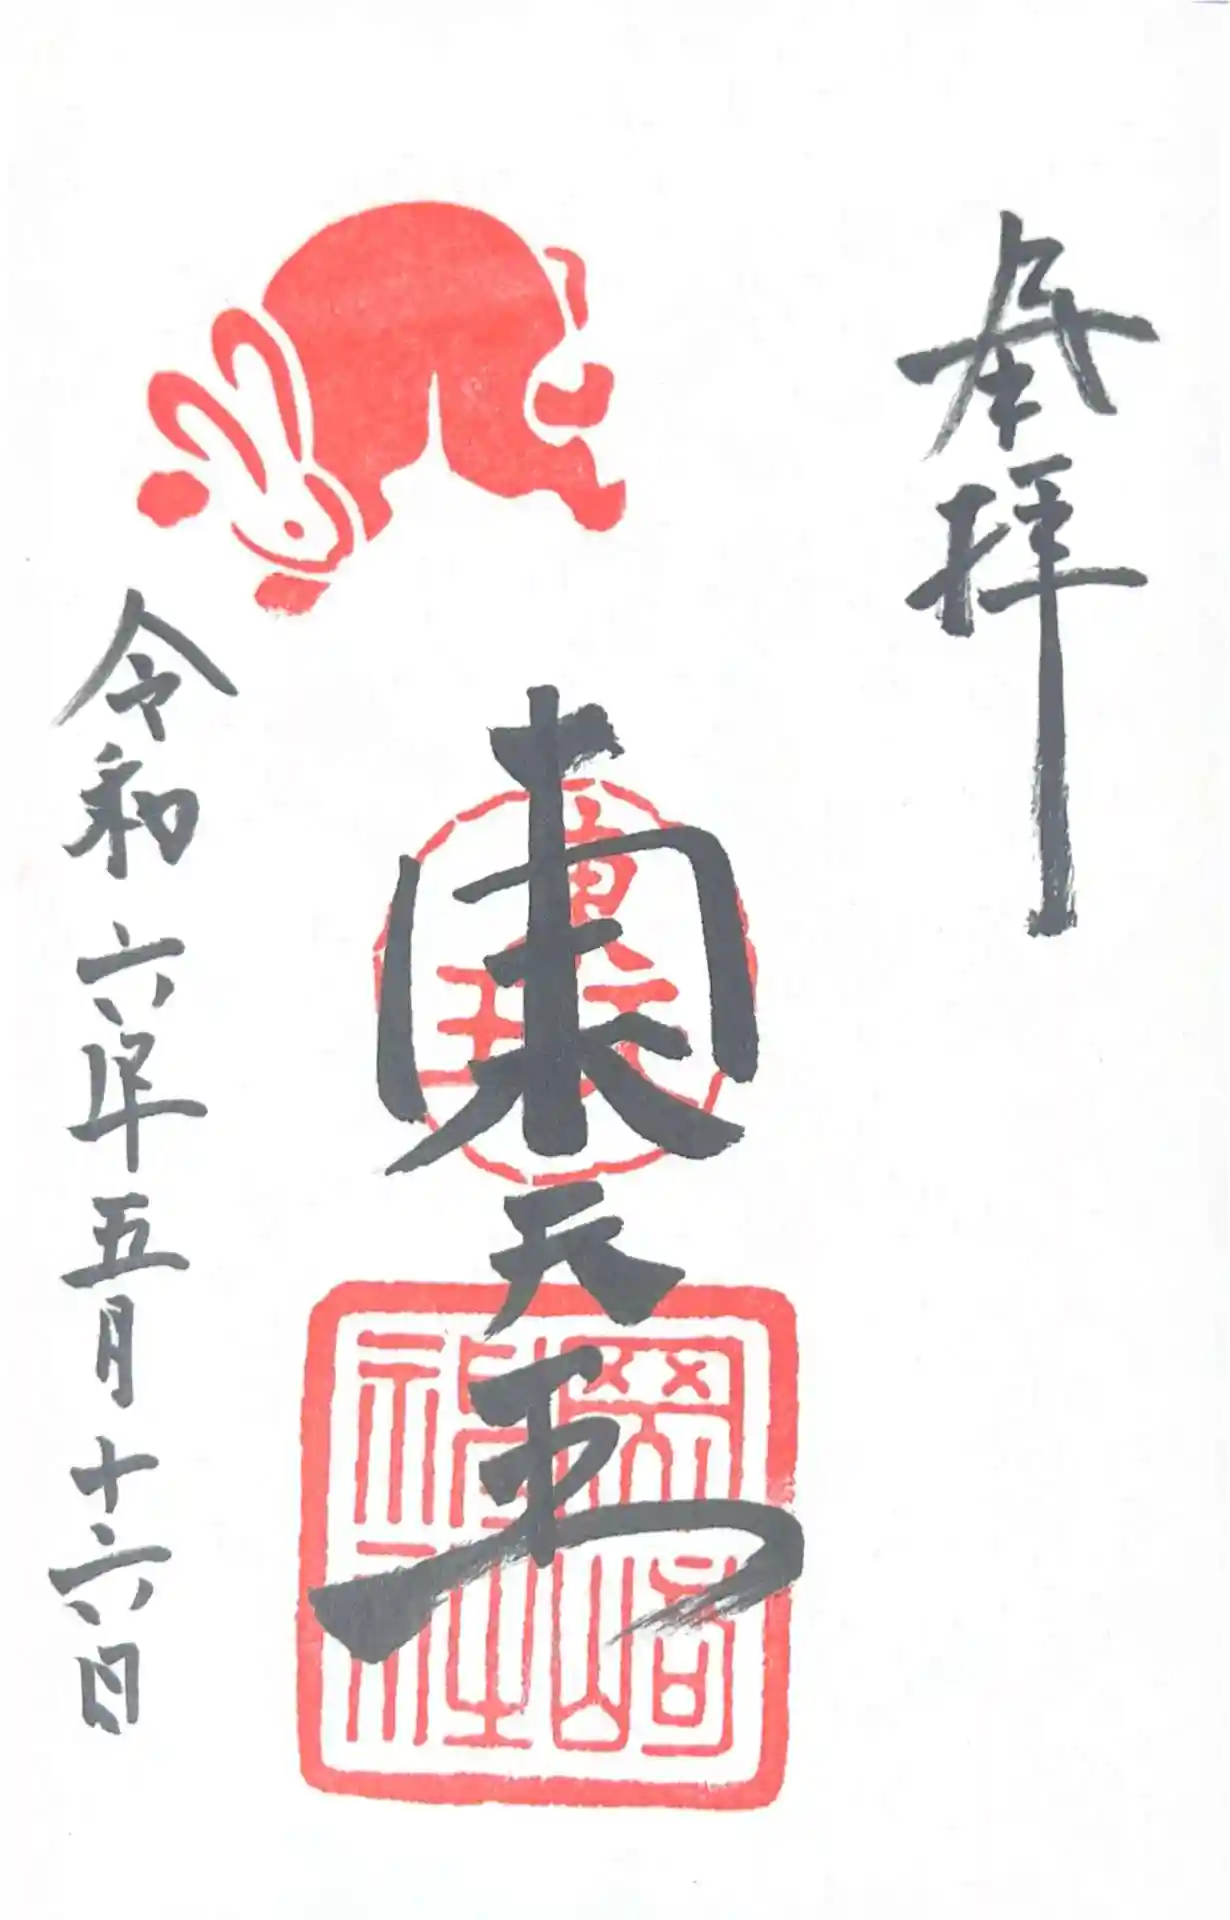 奉拝
東天王
岡崎神社
令和六年五月十六日